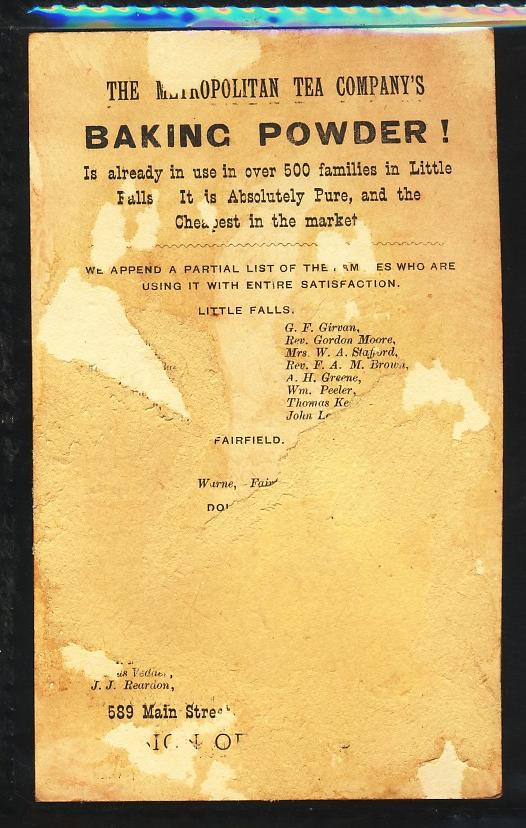 THE METROPOLITAN TEA COMPANY'S
BAKING POWDER!
Is already in use in over 500 families in Little
Falls It is Absolutely Pure, and the
Cheapest in the market
WE APPEND A PARTIAL LIST OF THE FAMILIES WHO ARE
USING IT WITH ENTIRE SATISFACTION.
LITTLE FALLS.
G. F. Girvan,
Rev. Gordon Moore,
Mrs. W. A. Stafford,
Rev. F. A. M. Brown,
A. H. Greene,
Wm. Peeler,
Thomas
John
FAIRFIELD.
Warne,
J. J. Reardon,
589 Main Street